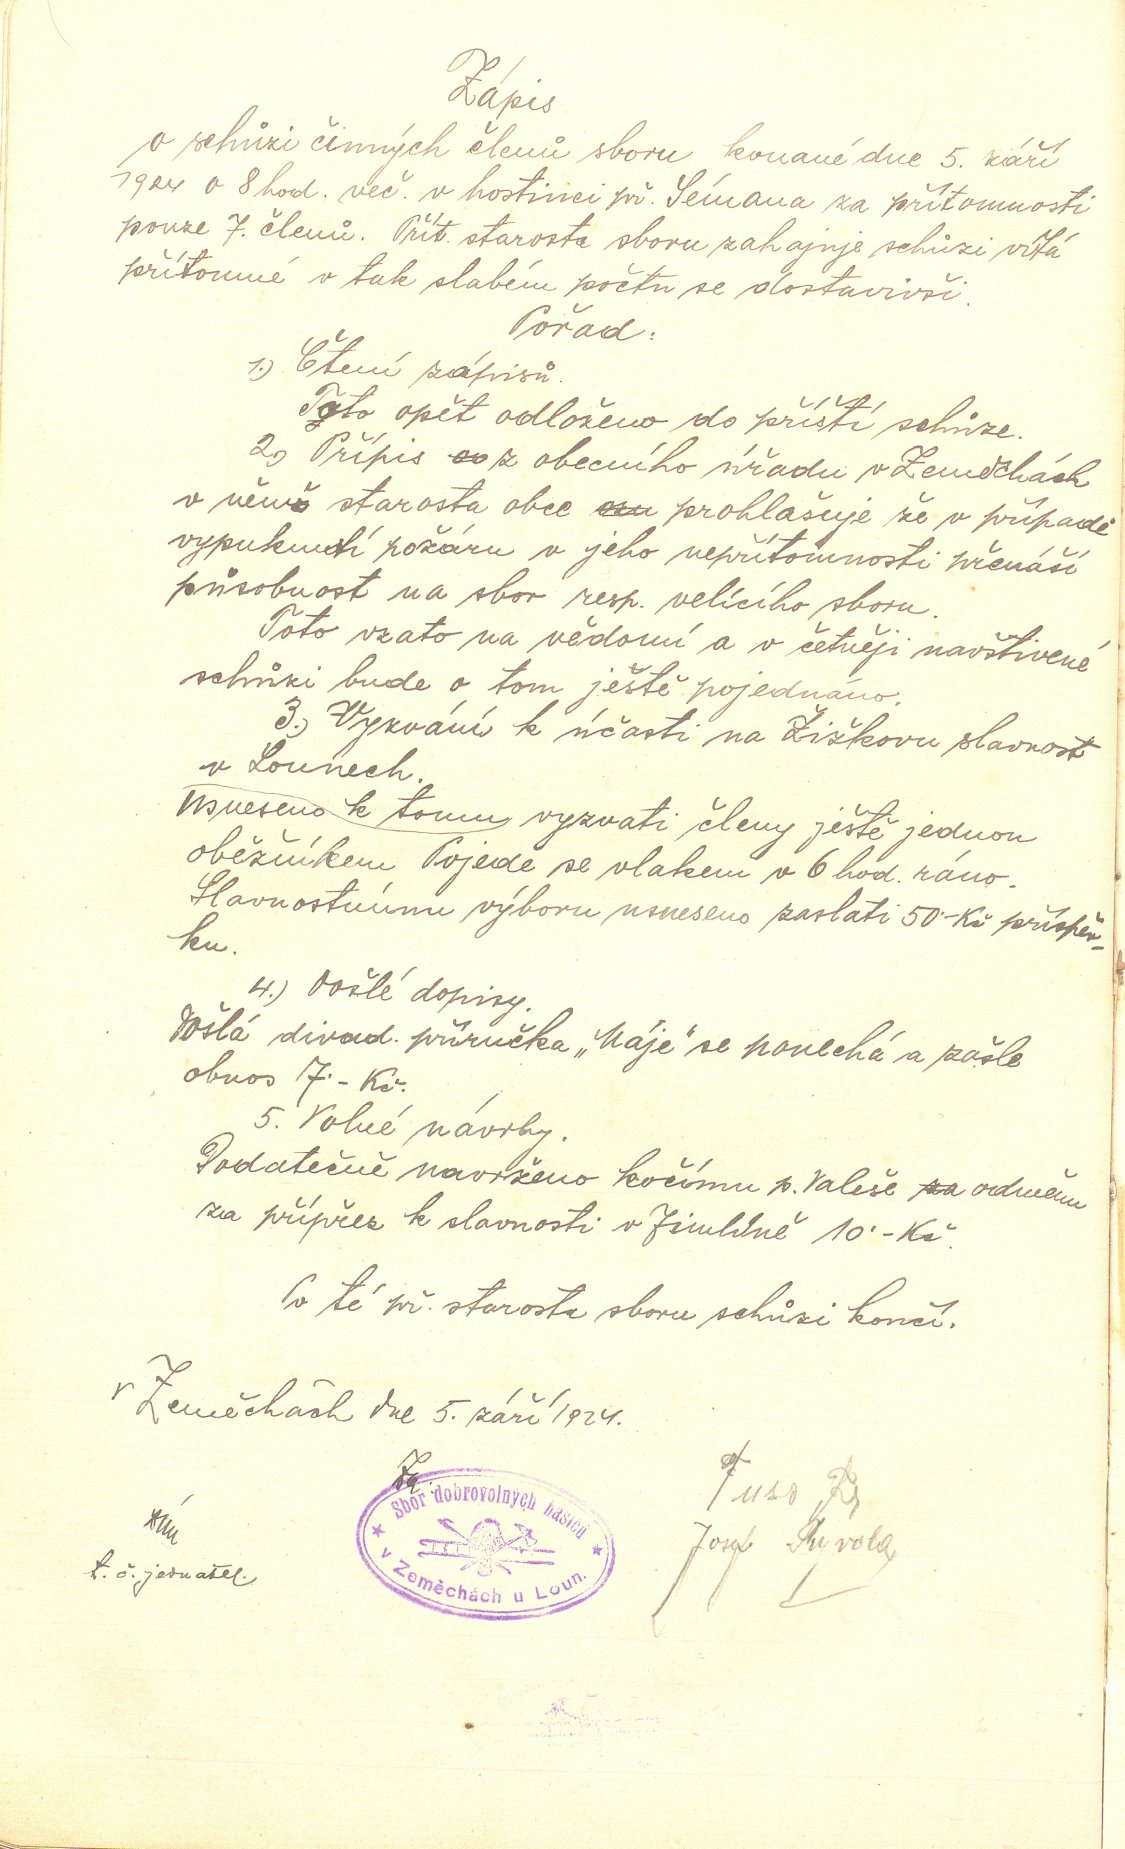 Zápis
o schůzi činných členů sboru konané dne 5. září
1924 o 8 hod. več. v hostinci př. Sémana za přítomnosti
pouze 7. členů. Přít. starosta sboru zahajuje schůzi vítá
přítomné v tak slabém počtu se dostavivší.
Pořad:
1.) Čtení zápisů.
Toto opět odloženo do příští schůze.
2) Přípis z obecního úřadu v Zeměchách
v němž starosta obce prohlašuje že v případě
vypuknutí požáru v jeho nepřítomnosti přenáší
působnost na sbor resp. velícího sboru.
Toto vzato na vědomí a v četněji navštívené
schůzi bude o tom ještě pojednáno.
3.) Vyzvání k účasti na Žižkovu slavnost
v Lounech.
Usneseno k tomu vyzvati členy ještě jednou
oběžníkem Pojede se vlakem v 6 hod. ráno.
Slavnostnímu výboru usneseno zaslati 50·-Kč příspěv-
ku.
4.) Došlé dopisy.
Došlá divad. příručka „Máje" se ponechá a zašle
obnos 7·- Kč.
5. Volné návrhy.
Dodatečně navrženo kočímu p. Valeše odměnu
za přípřež k slavnosti v Jimlíně 10·-Kč.
Po té př. starosta sboru schůzi končí.
v Zeměchách dne 5. září 1924.
Za
Sbor dobrovolných hasičů
v Zeměchách u Loun.
t. č. jednatel.
Josef